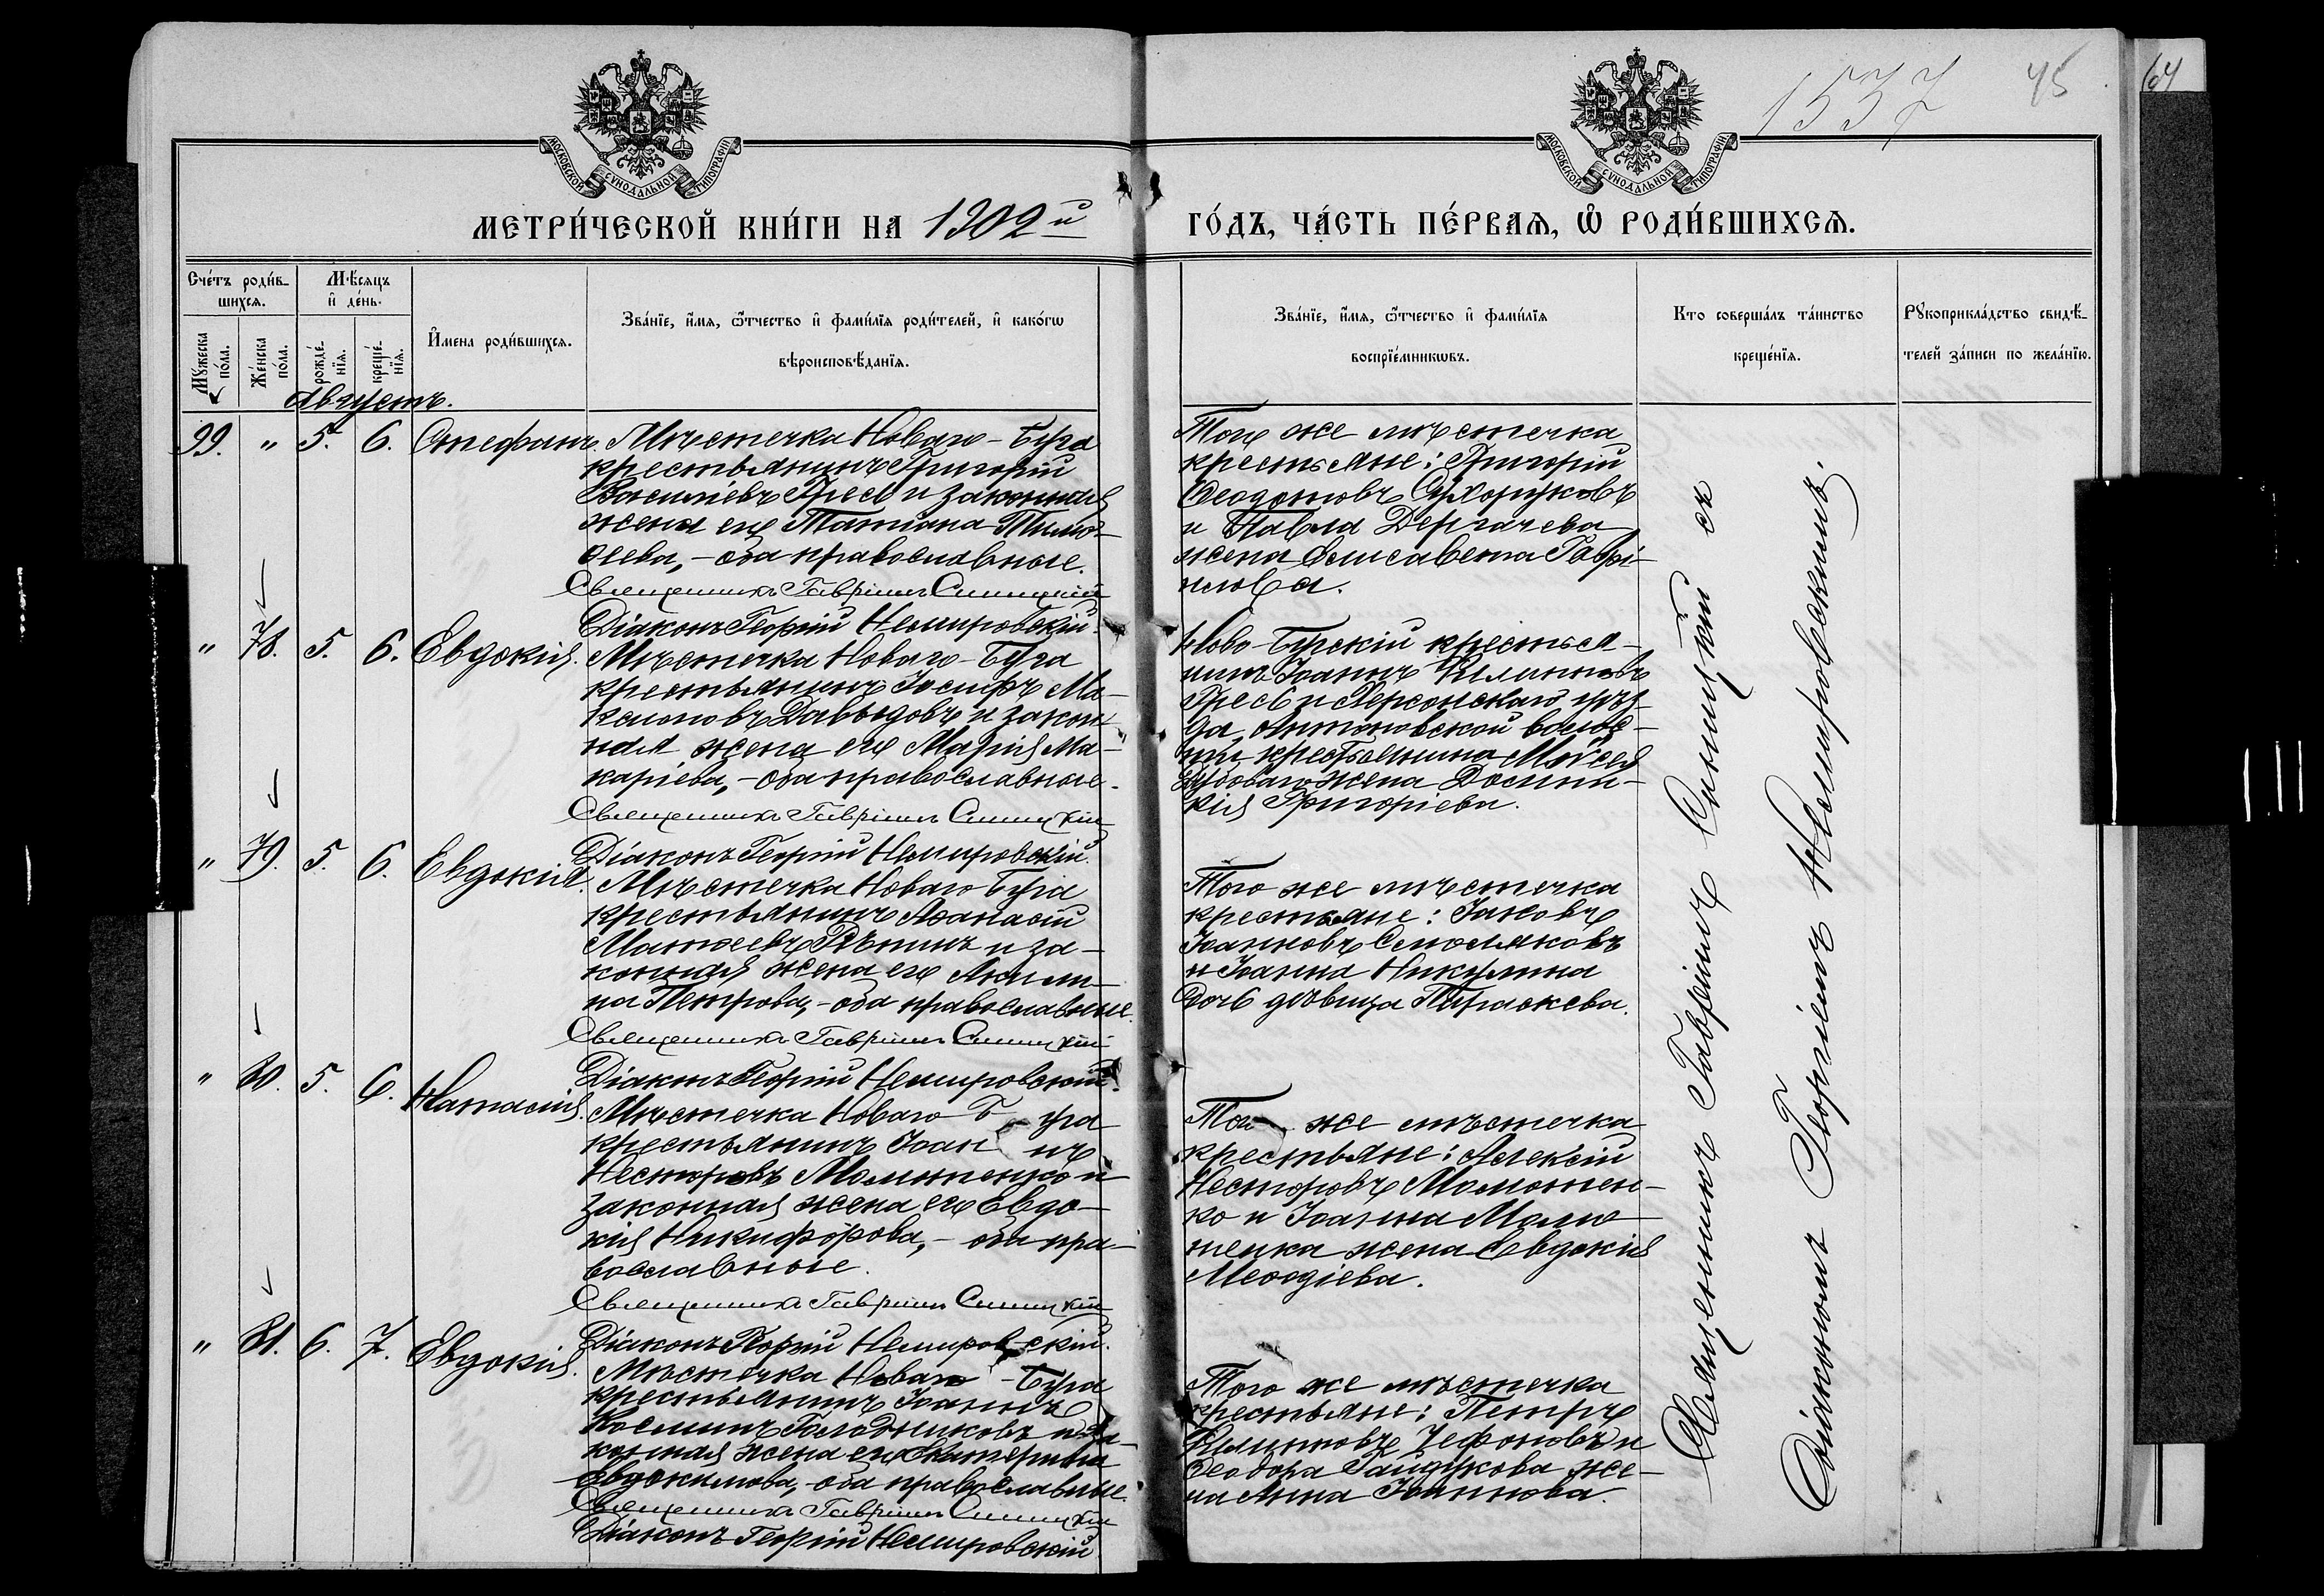 1537 45
64
МОСКОВСКОЙ СѴНОДАЛЬНОЙ ТИПОГРАФІИ
МОСКОВСКОЙ СѴНОДАЛЬНОЙ ТИПОГРАФІИ
МЕТРИ́ЧЕСКОЙ КНИ́ГИ НА 1902й
ГО́ДЪ, ЧА́СТЬ ПЕ́РВАѦ, Ѡ҆ РОДИ́ВШИХСѦ.
Сче́тъ роди́в-
шихсѧ.
Мꙋжеска по́ла.
Же́нска по́ла.
Мѣ́сѧцъ
и҆ де́нь.
рожде́нїѧ.
креще́нїѧ.
И҆мена роди́вшихсѧ.
Зва́нїе, и҆́мѧ, ѻ҆́тчество и҆ фами́лїѧ роди́телей, и҆ како́гѡ
вѣроисповѣ́данїѧ.
Зва́нїе, и҆́мѧ, ѻ҆́тчество и҆ фами́лїѧ
воспрїе́мникѡвъ.
Кто соверша́лъ та́инство
креще́нїѧ.
Рꙋкоприкла́дство свидѣ́-
телей за́писи по жела́нїю.
Августъ.
99. " 5. 6. Стефанъ. Мѣстечка Новаго-Буга
крестьянинъ Григорій
Василіевъ Гресь и законная
жена его Татіана Тимо-
ѳеева, - оба православные.
Священникъ Гавріилъ Синицкій
Діаконъ Георгій Немировскій.
Того же мѣстечка
крестьяне: Григорій
Ѳеодотовъ Сухоруковъ
и Павла Дергачева
жена Елисавета Гаврі-
илова.
" 78. 5. 6. Евдокія. Мѣстечка Новаго-Буга
крестьянинъ Іосифъ Ма-
ксимовъ Давыдовъ и закон-
ная жена его Марія Ма-
каріева, - оба православные.
Священникъ Гавріилъ Синицкій
Діаконъ Георгій Немировскій.
Ново-Бугскій крестья-
нинъ Іоаннъ Филипповъ
Гресь и Херсонскаго уѣз-
да, Антоновской волос-
ти крестьянина Моѵсея
жена Домни-
кія Григоріева.
" 79. 5. 6. Евдокія. Мѣстечка Новаго Буга
крестьянинъ Аѳанасій
Матѳеевъ Рѣпинъ и за-
конная жена его Акили-
на Петрова, - оба православные.
Священникъ Гавріилъ Синицкій
Діаконъ Георгій Немировскій.
Того же мѣстечка
крестьяне: Іаковъ
Іоанновъ Смоляковъ
и Іоанна Никулина
дочь дѣвица Параскева.
" 80. 5. 6. Натасія. Мѣстечка Новаго Буга
крестьянинъ Іоаннъ
Несторовъ Молотенко и
законная жена его Евдо-
кія Никифорова, - оба пра-
вославные.
Священникъ Гавріилъ Синицкій
Діаконъ Георгій Немировскій.
Того же мѣстечка
крестьяне: Алексій
Несторовъ Молотен-
ко и Іоанна Моло-
тенка жена Евдокія
Меѳодіева.
" 81. 6. 7. Евдокія. Мѣстечка Новаго-Буга
крестьянинъ Іоаннъ
Косминъ Голодниковъ и за-
конная жена его Екатерина
Евдокимова, - оба православные.
Священникъ Гавріилъ Синицкій
Діаконъ Георгій Немировскій
Того же мѣстечка
крестьяне: Петръ
Филипповъ Чефоновъ и
Ѳеодора Гайдукова же-
на Анна Іоаннова.
Священникъ Гавріилъ Синицкій съ
Діакономъ Георгіемъ Немировскимъ.